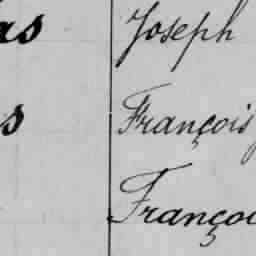 as Joseph
s François
Franço